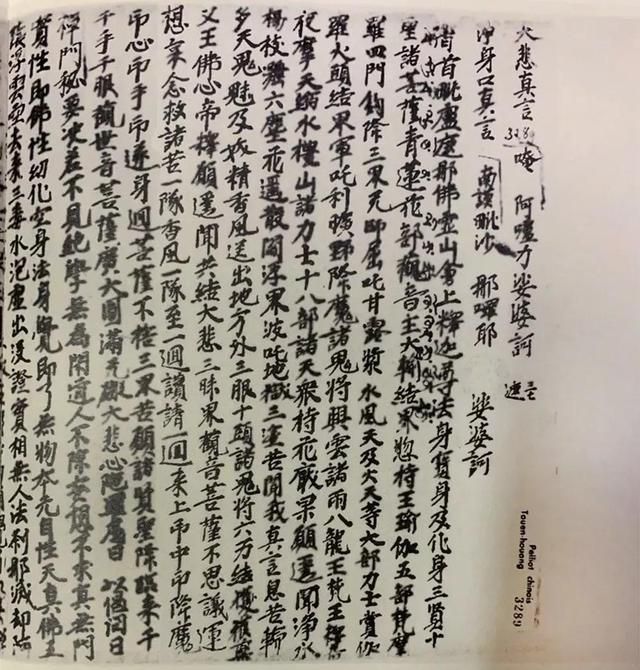 大悲真言 唵 阿嚧力 娑婆訶 三遍
3289
淨身口真言 南謨毗沙 那囉耶 娑婆訶
稽首毗盧遮那佛靈山會上釋迦尊法身報身及化身三賢十
聖諸菩薩青蓮花部觀音王大輪結界惣持王瑜伽五部梵摩
羅四門鈎降三界尅即屈吒甘露漿水風天及火天等大部力士賞伽
羅火頭結界軍吒利曠野降魔諸鬼將興雲諸雨八龍王梵王
夜摩天獨水櫻山諸力士十八部諸天衆持花嚴果願遥聞淨水
楊枝灑六塵花遥散閻浮界波吒地獄三塗苦聞我真言息苦輪
多天鬼魅及妖精香風送出地方外三眼十頭諸鬼將六方結
父王佛心帝釋願遥聞共結大悲三昧界觀音菩薩不思議運
想衆念救諸苦一隊香風一隊至一迴讚請一迴来上帀中帀降魔
帀心帀手帀遂身迴菩薩不捨三界苦願諸賢聖降臨来千
千手千眼觀世音菩薩廣大圓滿无礙大悲心陁羅尼曰 以偈問曰
禪門秘要决 君不見絕學無爲閑道人不除妄想不求真無明
實性即佛性幻化空身法身覺即了無物本元自性天真佛五
陰浮雲空去来三毒水泡虛出没證實相無人法刹那滅却阿
Pelliot chinois
Touen-houang
3289